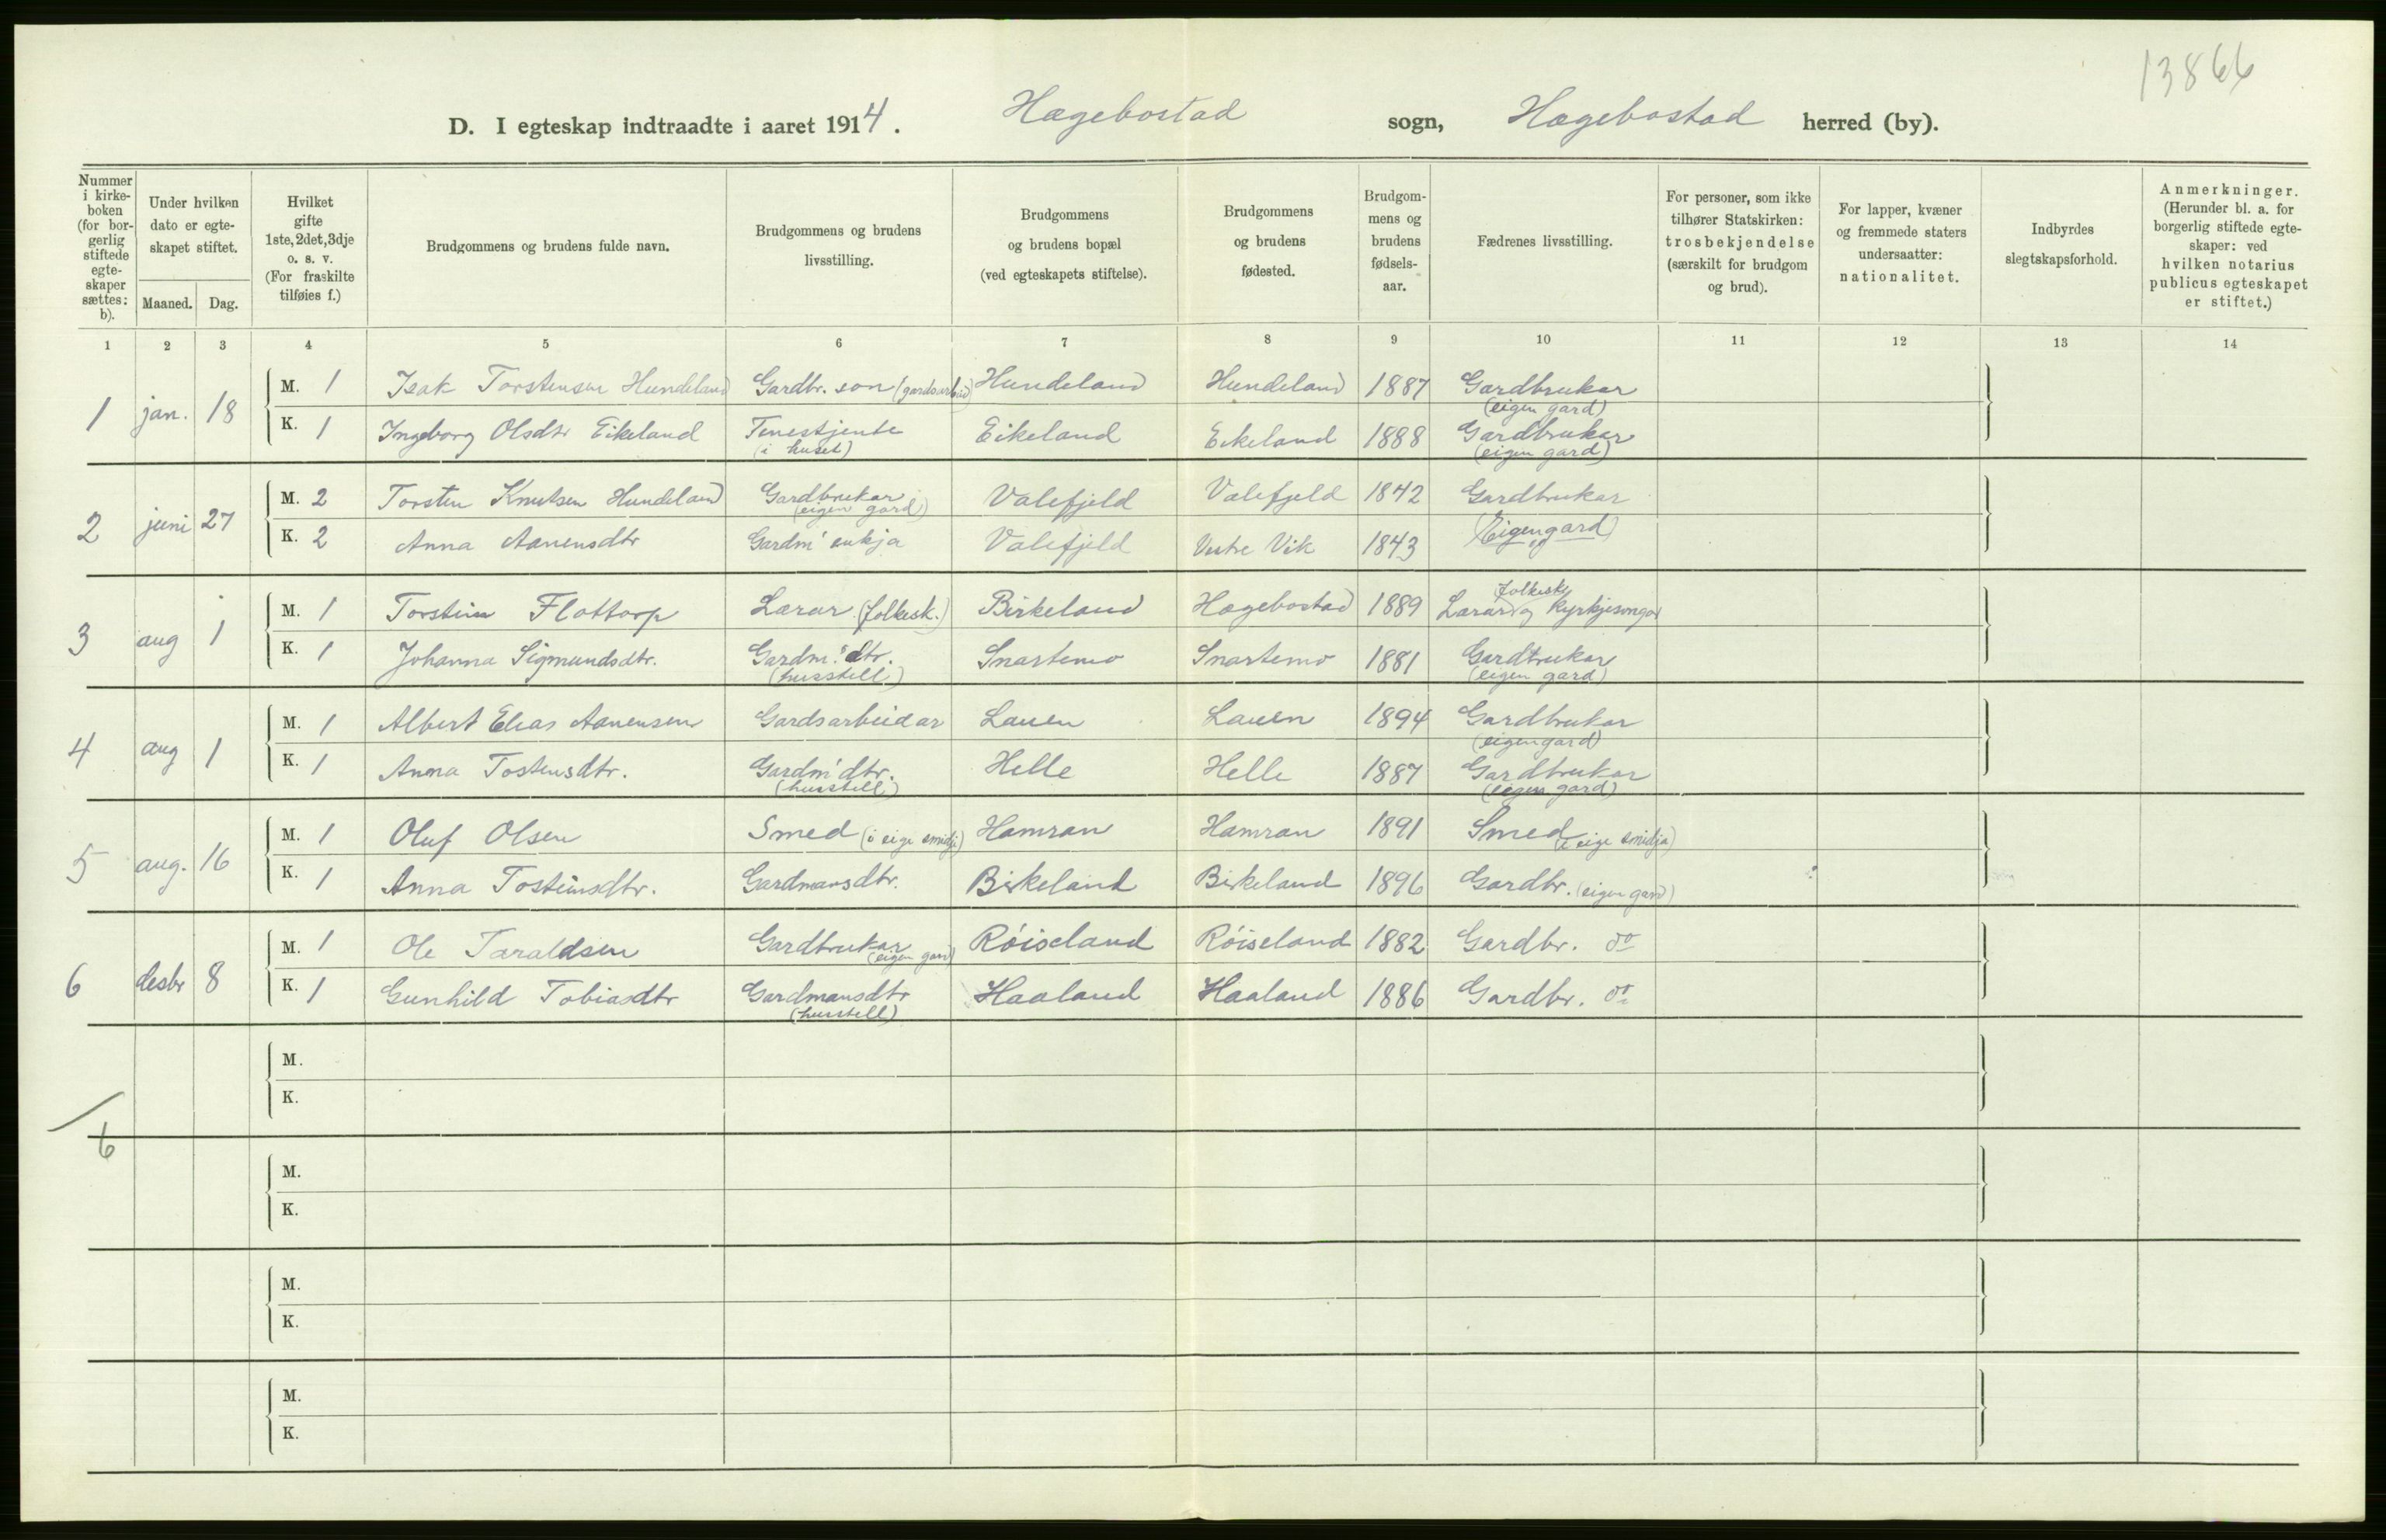 13866
D. I egteskap indtraadte i aaret 1914. Hægebostad sogn, Hægebostad herred (by).
Nummer i kirkeboken (for borgerlig stiftede egteskaper sættes: b).
Under hvilken dato er egteskapet stiftet.
Maaned. Dag.
Hvilket gifte 1ste, 2det, 3dje o. s. v. (For fraskilte tilføies f.)
Brudgommens og brudens fulde navn.
Brudgommens og brudens livsstilling.
Brudgommens og brudens bopæl (ved egteskapets stiftelse).
Brudgommens og brudens fødested.
Brudgommens og brudens fødselsaar.
Fædrenes livsstilling.
For personer, som ikke tilhører Statskirken: trosbekjendelse (særskilt for brudgom og brud).
For lapper, kvæner og fremmede staters undersaatter: nationalitet.
Indbyrdes slegtskapsforhold.
Anmerkninger. (Herunder bl. a. for borgerlig stiftede egteskaper: ved hvilken notarius publicus egteskapet er stiftet.)
1 2 3 4 5 6 7 8 9 10 11 12 13 14
1 jan. 18 M. 1 Isak Torstensen Hundeland Gardbr. son (gardsarbeid) Hundeland Hundeland 1887 Gardbrukar (eigen gard)
K. 1 Ingeborg Olsdtr Eikeland Tenestjente (i huset) Eikeland Eikeland 1888 Gardbrukar (eigen gard)
2 juni 27 M. 2 Torsten Knutsen Hundeland Gardbrukar (eigen gard) Valefjeld Valefjeld 1842 Gardbrukar
K. 2 Anna Aanensdtr Gardm' enkja Valefjeld Vestre Vik 1843 (Eigen gard)
3 aug 1 M. 1 Torstein Flottorp Lærar (folkesk.) Birkeland Hægebostad 1889 Lærar folkesk. og kyrkjesongar
K. 1 Johanna Sigmundsdtr. Gardm' dtr. (husstell) Snartemo Snartemo 1881 Gardbrukar (eigen gard)
4 aug 1 M. 1 Albert Elias Aanensen Gardsarbeidar Lauen Lauen 1894 Gardbrukar (eigen gard)
K. 1 Anna Tostensdtr. Gardm' dtr. (husstell) Helle Helle 1887 Gardbrukar (eigen gard)
5 aug. 16 M. 1 Oluf Olsen Smed (i eige smidje) Hamran Hamran 1891 Smed (i eige smidja)
K. 1 Anna Tosteinsdtr. Gardmansdtr. Birkeland Birkeland 1896 Gardbr. (eigen gard)
6 desbr 8 M. 1 Ole Taraldsen Gardbrukar (eigen gard) Röiseland Röiseland 1882 Gardbr. do
K. 1 Gunhild Tobiasdtr Gardmansdtr (husstell) Haaland Haaland 1886 Gardbr. do
M.
K.
6
M.
K.
M.
K.
M.
K.